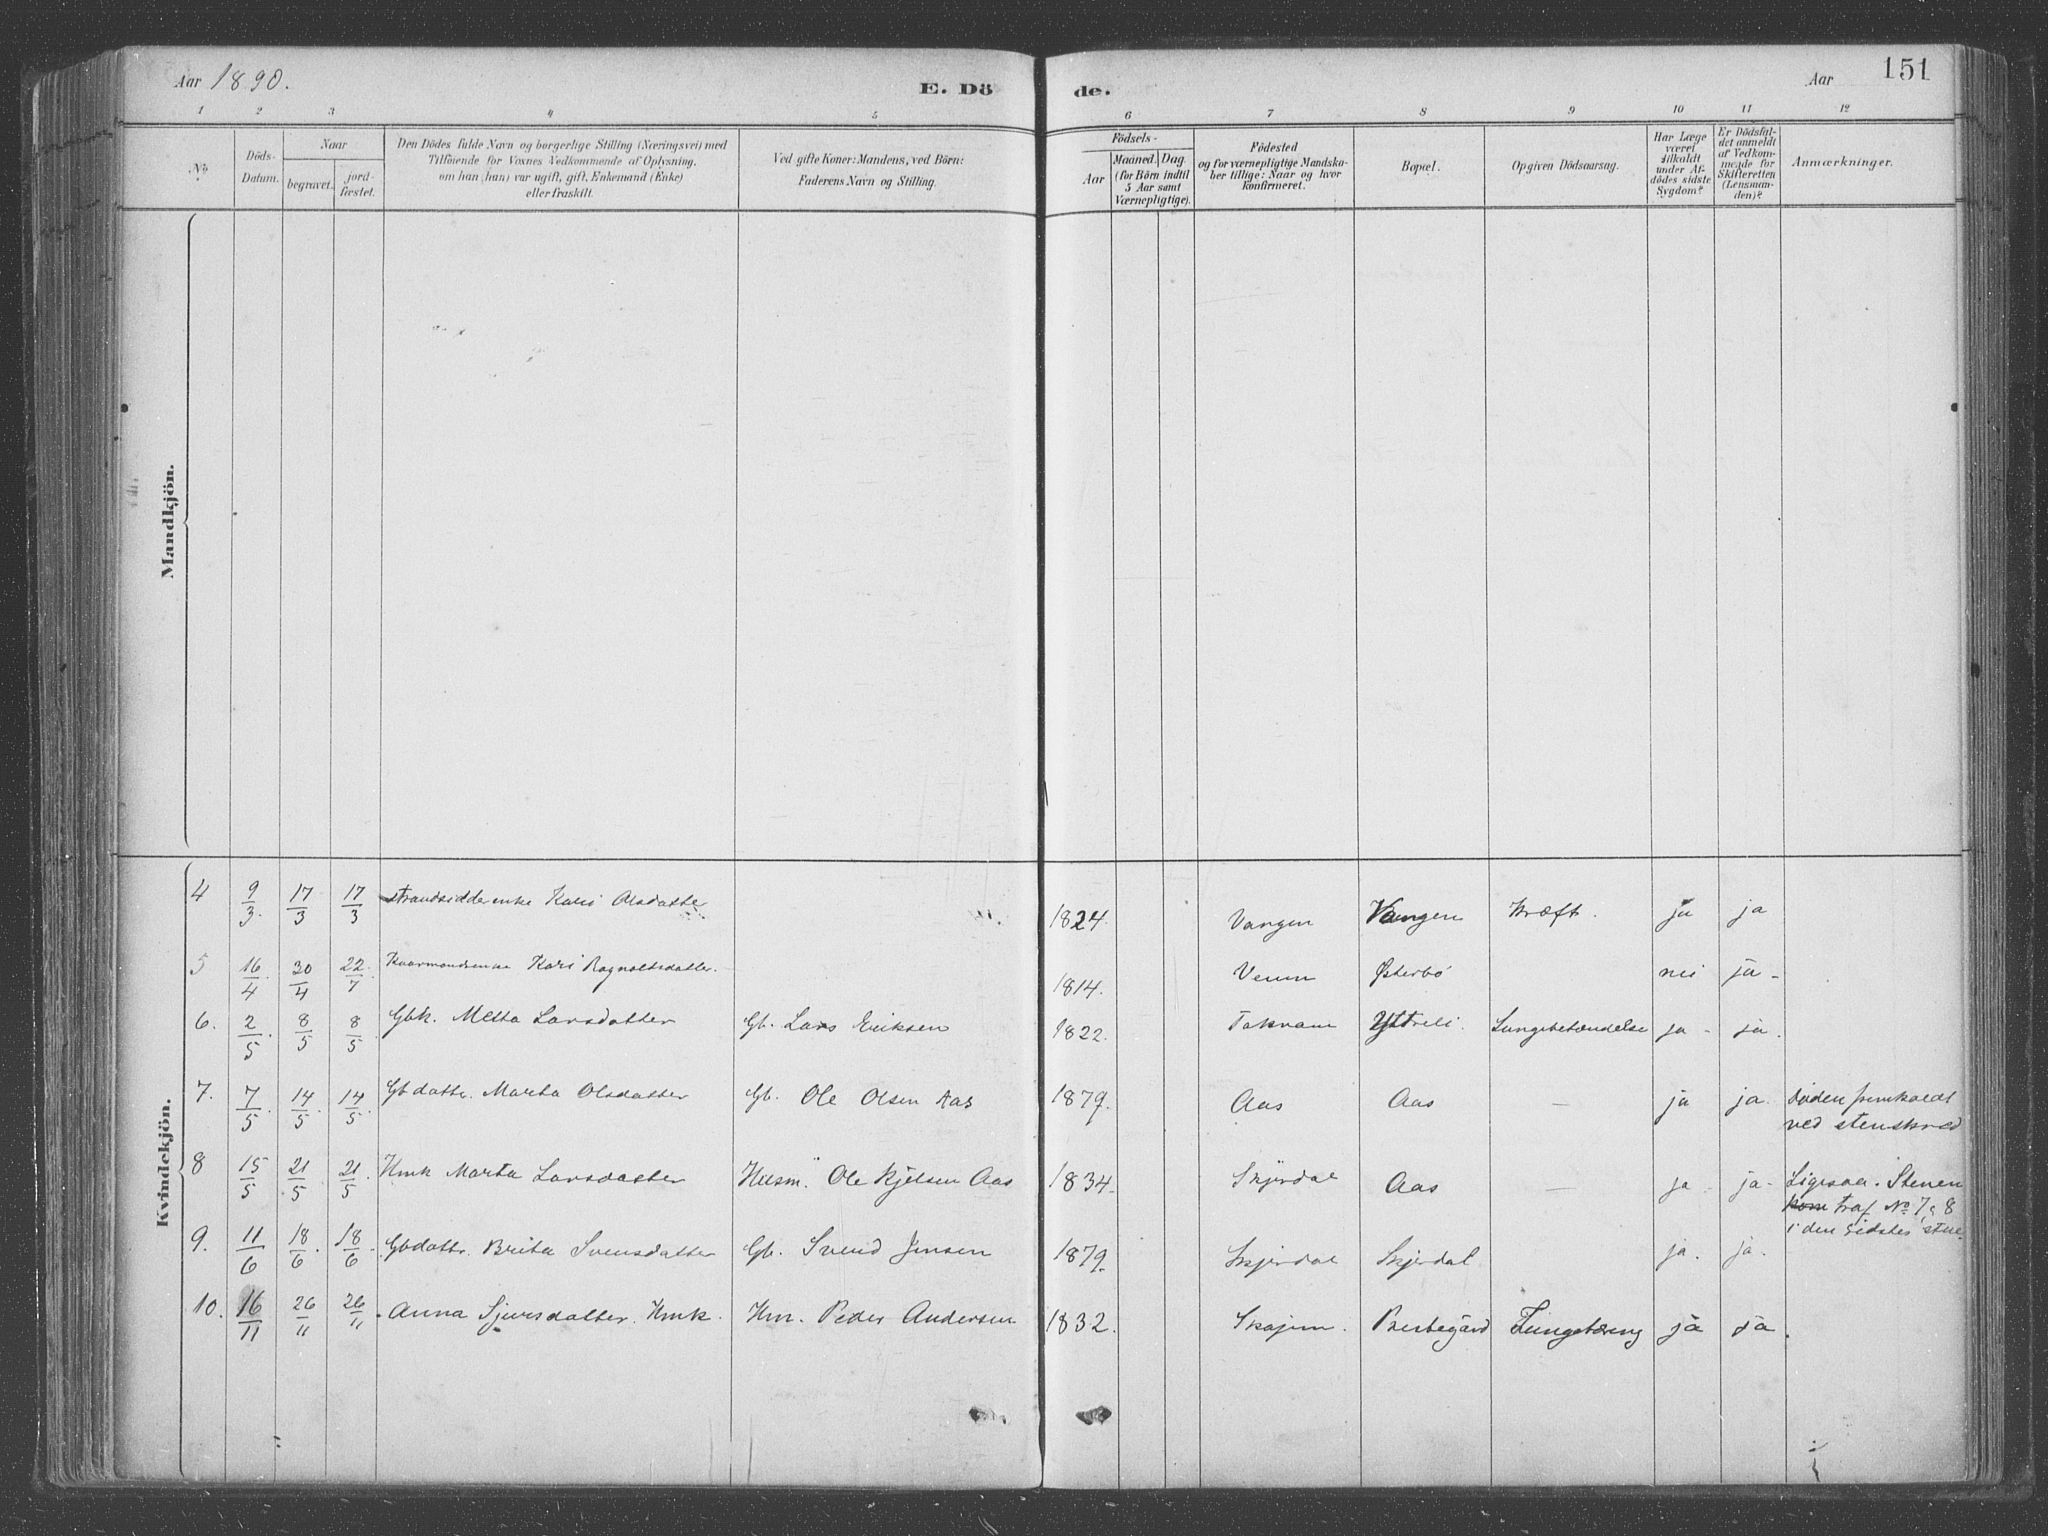 Aar 1890.
E. Dö
de.
Aar
151
1 2 3 4 5 6 7 8 9 10 11 12
No.
Döds-
Datum.
Naar
begravet.
jord-
fæstet.
Den Dödes fulde Navn og borgerlige Stilling (Næringsvei) med
Tilföiende for Voxnes Vedkommende af Oplysning,
om han (hun) var ugift, gift, Enkemand (Enke)
eller fraskilt.
Ved gifte Koner: Mandens, ved Börn:
Faderens Navn og Stilling.
Födsels-
Aar
Maaned. Dag.
(for Börn indtil
5 Aar samt
Værnepligtige).
Födested
og for værnepligtige Mandska-
ber tillige: Naar og hvor
konfirmeret.
Bopæl.
Opgiven Dödsaarsag.
Har Læge
været
tilkaldt
under Af-
dödes sidste
Sygdom?
Er Dödsfal-
det anmeldt
af Vedkom-
mende for
Skifteretten
(Lensman-
den)?
Anmærkninger.
Mandkjön.
Kvindekjön.
4 9/3. 17/3 17/3 strandsidderenke Kari Olsdatter 1824. Vangen Vangen Kræft. ja ja
5 16/4. 30/4 22/7 Kaarmandsenke Kari Ragnvaldsdatter. 1814. Østerbø nei ja -
6. 2/5. 8/5 8/5 Gbk. Metta Larsdatter Gb. Lars Eriksen 1822. Ytreli. Lungebetændelse ja - ja.
7. 7/5. 14/5. 14/5. Gbdatter. Marta Olsdatter Gb. Ole Olsen Aas 1879. Aas Aas — ja ja. Døden fremkaldt
ved stenskred
8 15/5 21/5 21/5. Hmk Marta Larsdatter Husm. Ole Kjelsen Aas 1834. Skjerdal Aas — ja ja - Ligesaa. Stenen
kom traf No 7 & 8
i den sidstes stue.
9. 11/6 18/6. 18/6 Gbdatter. Brita Svensdatter Gb. Svend Jensen 1879. Skjerdal Skjerdal ja. ja.
10. 16/11 26/11 26/11. Anna Sjursdatter. Hmk. Hm. Peder Andersen 1832. Skajem. Lungetæring ja ja.